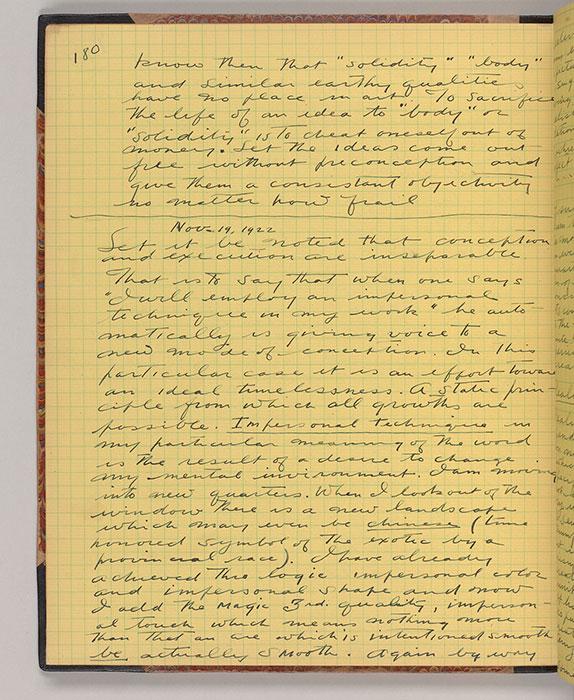 180
know then that "solidity" "body"
and similar earthy qualities
have no place in art. To sacrifice
the life of an idea to "body" or
"solidity" is to cheat oneself out of
money. Let the ideas come out
free without preconception and
give them a consistant objectivity
no matter how frail
Nov. 19, 1922
Let it be noted that conception
and execution are inseparable
That is to say that when one says
"I will employ an impersonal
technique in my work" he auto-
matically is giving voice to a
new mode of conception. In this
particular case it is an effort toward
an ideal timelessness. A static prin-
ciple from which all growths are
possible. Impersonal technique in
my particular meaning of the word
is the result of a desire to change
my mental invironment. I am moving
into new quarters. When I look out of the
window there is a new landscape
which may even be chinese (time
honored symbol of the exotic by a
provincial race). I have already
achieved thro logic impersonal color
and impersonal shape and now
I add the magic 3rd. quality, imperson-
al touch which means nothing more
than that an are which is intentioned smooth
be actually smooth. Again by way